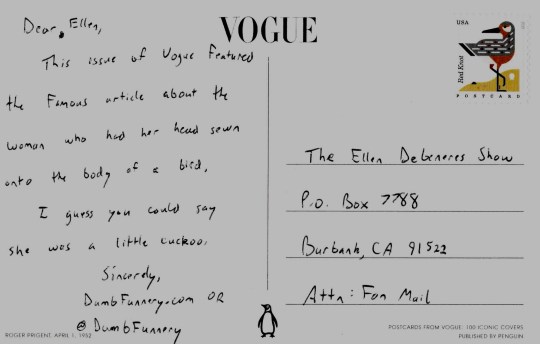 VOGUE
Dear, Ellen,
This issue of Vogue Featured
the Famous article about the
woman who had her head sewn
onto the body of a bird.
I guess you could say
she was a little cuckoo.
Sincerely,
DumbFunnery.com OR
@DumbFunnery
ROGER PRIGENT, APRIL 1, 1952
USA
Red Knot
POSTCARD
The Ellen DeGeneres Show
P.O. Box 7788
Burbank, CA 91522
Attn: Fan Mail
POSTCARDS FROM VOGUE: 100 ICONIC COVERS
PUBLISHED BY PENGUIN